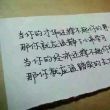 当你的才华还撑不起你的野
那你就应该静下心来学习
当你的经济还撑不起你的梦
那你就应该踏实的去